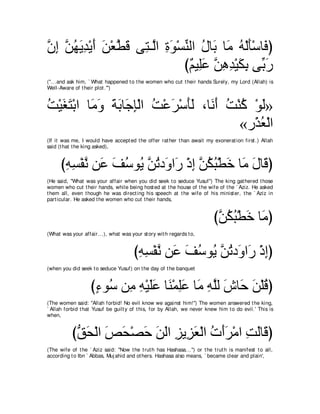 ﴿فَاسْأَلْهُ مَا بَالُ النِّسْوَةِ الَّـتِى قَطَّعْنَ أَيْدِيَهُنَّ إِنَّ
رَبِّى بِكَيْدِهِنَّ عَلِيمٌ﴾
("...and ask him, `What happened to the women who cut their hands Surely, my Lord (Allah) is
Well-Aware of their plot.'")
«لَوْ كُنْتُ أَنَا، لَأَسْرَعْتُ الْإِجَابَةَ وَمَا ابْتَغَيْتُ
الْعُذْر»
(If it was me, I would have accepted the offer rather than await my exoneration first.) Allah
said (that the king asked),
﴿قَالَ مَا خَطْبُكُنَّ إِذْ رَاوَدتُنَّ يُوسُفَ عَن نَّفْسِهِ﴾
(He said, "What was your affair when you did seek to seduce Yusuf") The king gathered those
women who cut their hands, while being hosted at the house of the wife of the `Aziz. He asked
them all, even though he was directing his speech at the wife of his minister, the `Aziz in
particular. He asked the women who cut their hands,
﴿مَا خَطْبُكُنَّ﴾
(What was your affair...), what was your story with regards to,
﴿إِذْ رَاوَدتُنَّ يُوسُفَ عَن نَّفْسِهِ﴾
(when you did seek to seduce Yusuf) on the day of the banquet
﴿قُلْنَ حَاشَ لِلَّهِ مَا عَلِمْنَا عَلَيْهِ مِن سُوءٍ﴾
(The women said: "Allah forbid! No evil know we against him!") The women answered the king,
`Allah forbid that Yusuf be guilty of this, for by Allah, we never knew him to do evil.' This is
when,
﴿قَالَتِ امْرَأَتُ الْعَزِيزِ الَنَ حَصْحَصَ الْحَقُّ﴾
(The wife of the `Aziz said: "Now the truth has Hashasa...") or the truth is manifest to all,
according to Ibn `Abbas, Mujahid and others. Hashasa also means, `became clear and plain',